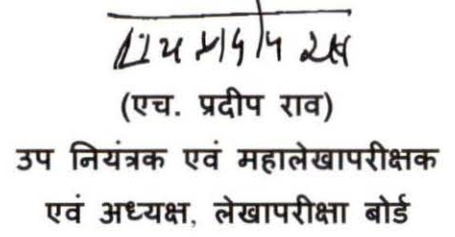 (एच. प्रदीप राव)
उप नियंत्रक एवं महालेखापरीक्षक
एवं अध्यक्ष, लेखापरीक्षा बोर्ड